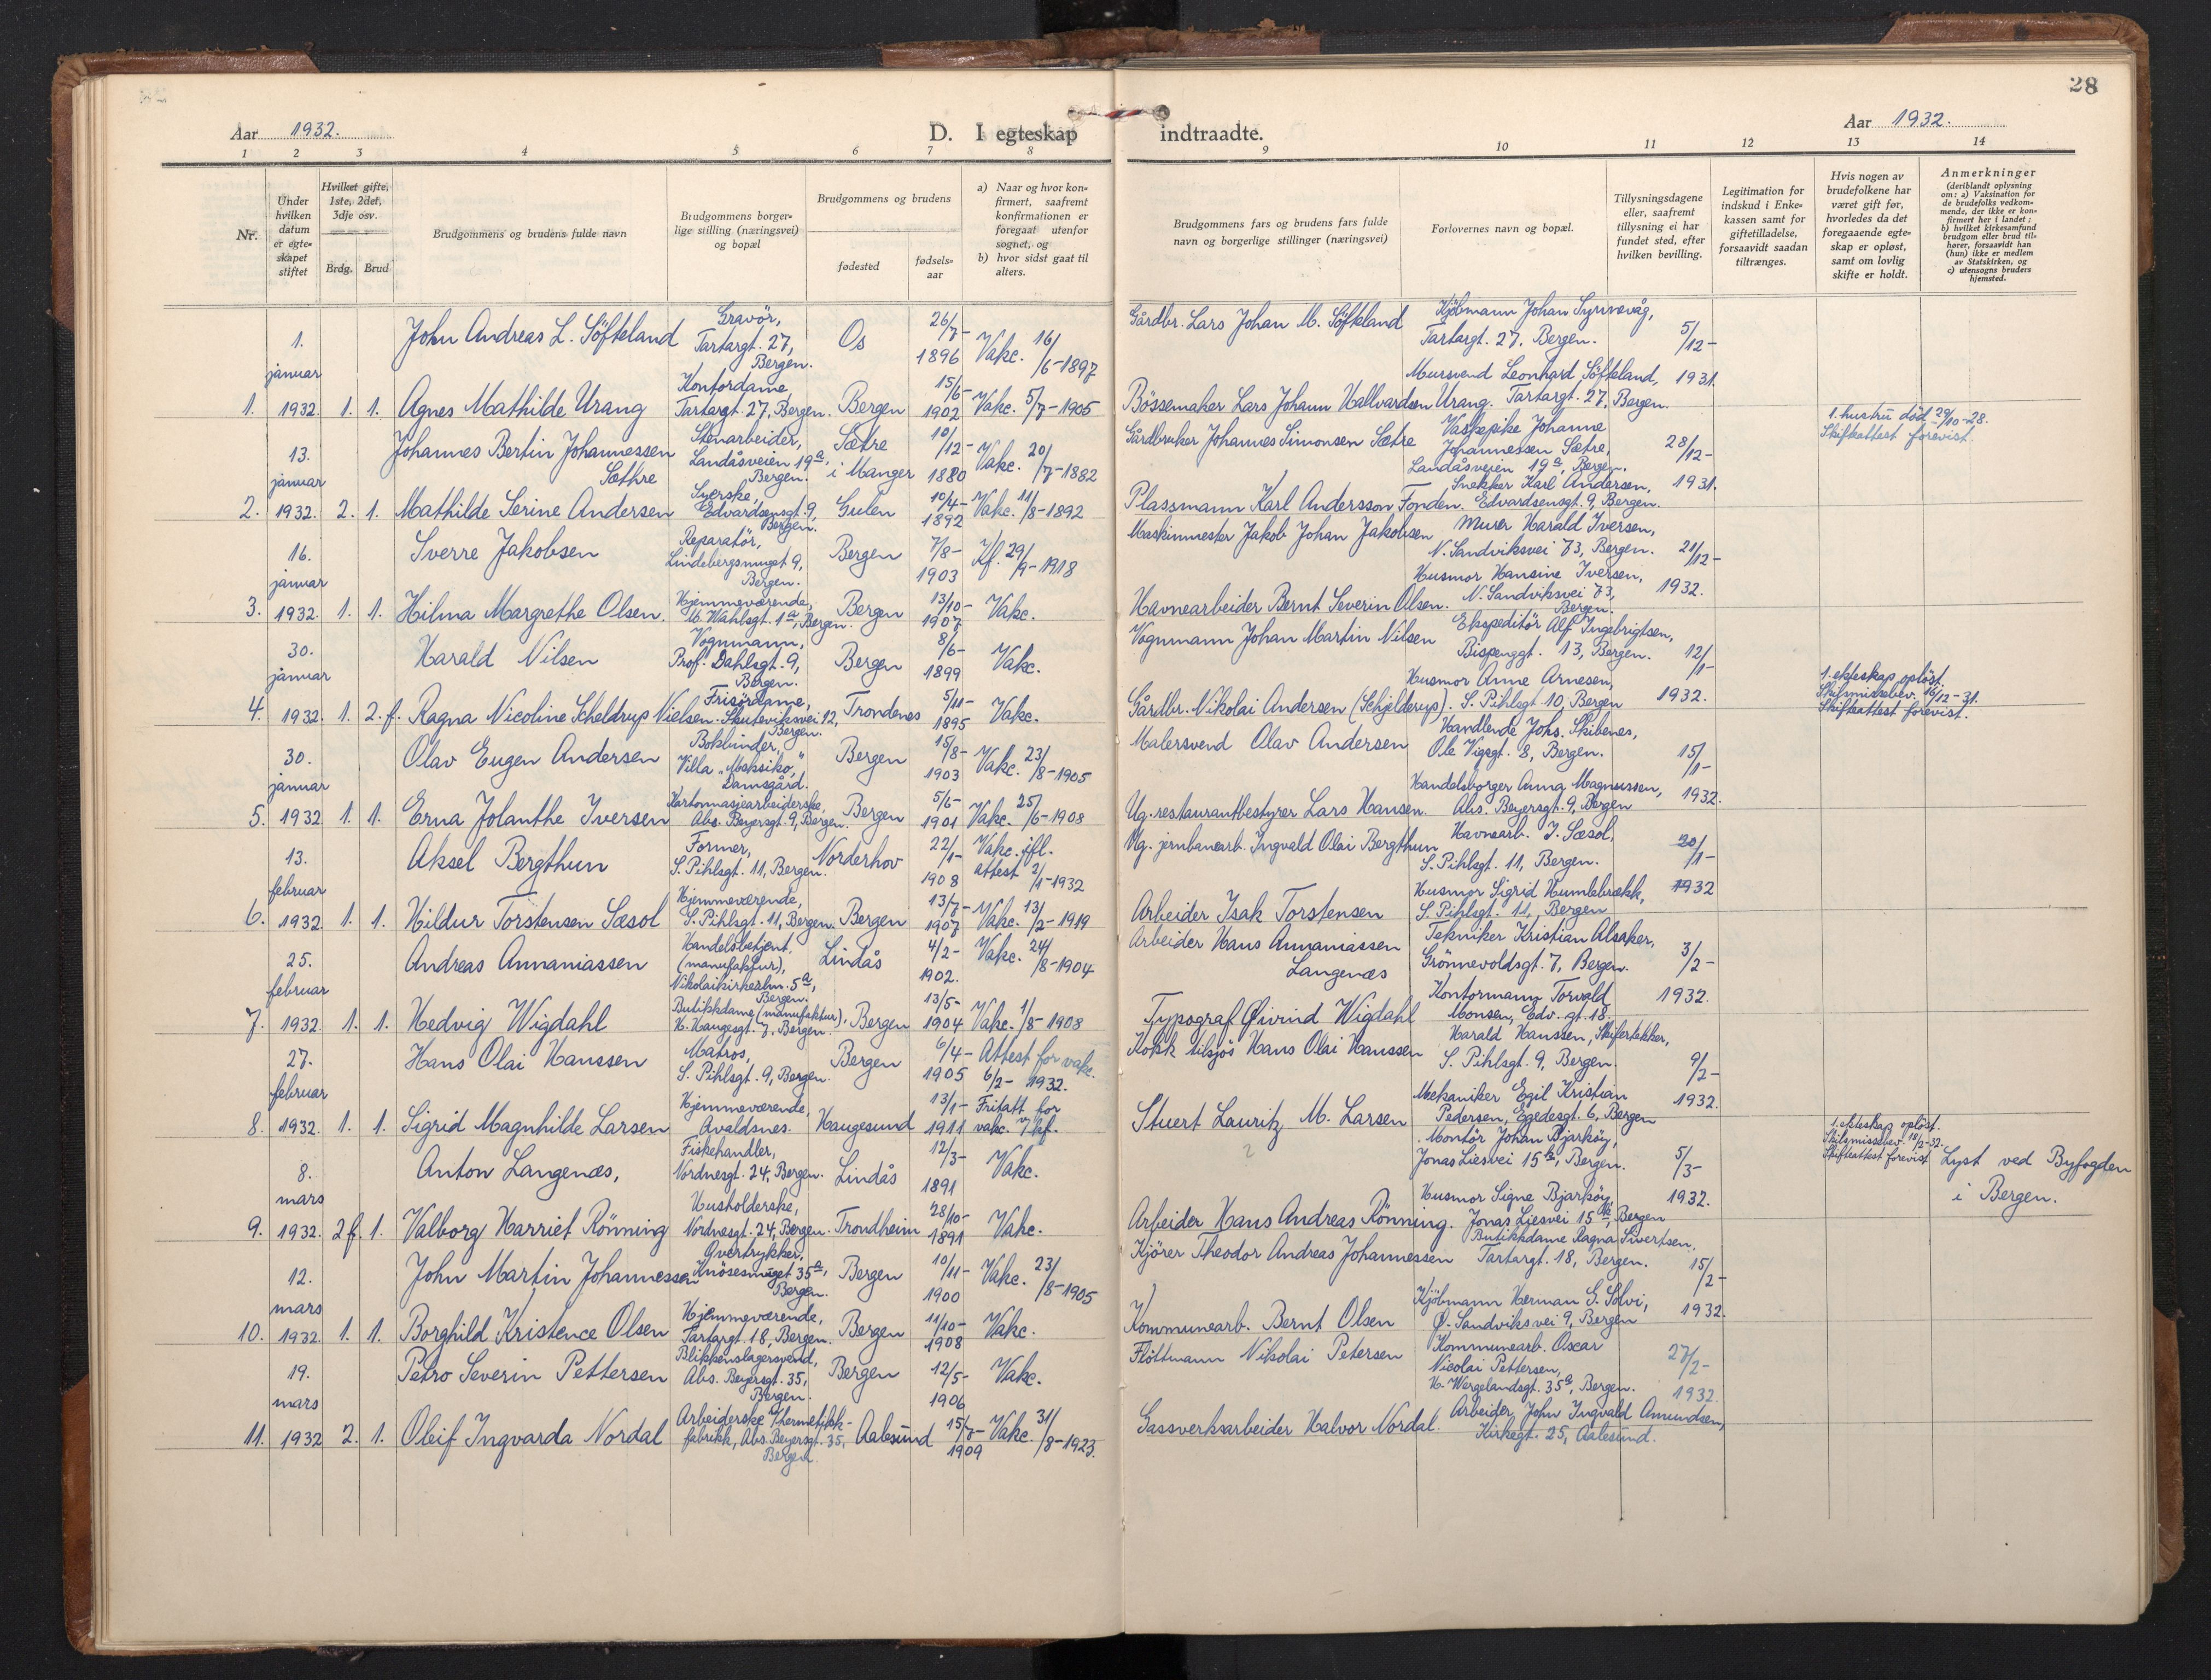 28
Aar 1932.
D. I egteskap indtraadte.
Aar 1932.
1 2 3 4 5 6 7 8 9 10 11 12 13 14
Nr.
Under hvilken datum er egteskapet stiftet
Hvilket gifte, 1ste, 2det, 3dje osv.
Brdg. Brud
Brudgommens og brudens fulde navn
Brudgommens borgerlige stilling (næringsvei) og bopæl
Brudgommens og brudens
fødested
fødselsaar
a) Naar og hvor konfirmert, saafremt konfirmationen er foregaat utenfor sognet, og
b) hvor sidst gaat til alters.
Brudgommens fars og brudens fars fulde navn og borgerlige stillinger (næringsvei)
Forlovernes navn og bopæl.
Tillysningsdagene eller, saafremt tillysning ei har fundet sted, efter hvilken bevilling.
Legitimation for indskud i Enkekassen samt for giftetilladelse, forsaavidt saadan tiltrænges.
Hvis nogen av brudefolkene har været gift før, hvorledes da det foregaaende egteskap er opløst, samt om lovlig skifte er holdt.
Anmerkninger
(deriblandt oplysning om: a) Vaksination for de brudefolks vedkommende, der ikke er konfirmert her i landet; b) hvilket kirkesamfund brudgom eller brud tilhører, forsaavidt han (hun) ikke er medlem av Statskirken, og c) utensogns bruders hjemsted.
1. 1. januar 1932. 1. 1.
John Andreas L. Söfteland Gravör, Tartargt. 27, Bergen. Os 26/7- 1896 Vakc. 16/6-1897 Gårdbr. Lars Johan M. Söfteland Kjöbmann Johan Synnevåg, Tartargt. 27, Bergen. 5/12- 1931.
Agnes Mathilde Urang Kontordame, Tartargt. 27, Bergen. Bergen 15/6- 1902 Vakc. 5/7-1905 Bössemaker Lars Johann Hallvardsen Urang. Mursvend Leonhard Söfteland, Tartargt. 27, Bergen.
2. 13. januar 1932. 2. 1.
Johannes Bertin Johannessen Sæthre Stenarbeider, Landåsveien 19a, Bergen. Sætre i Manger 10/12- 1880 Vakc. 20/7-1882 Gårdbruker Johannes Simonsen Sætre Vaskepike Johanne Johannessen Sætre, Landåsveien 19a, Bergen. 28/12- 1931. 1. hustru död 29/10-28. Skifteattest forevist.
Mathilde Serine Andersen Syerske, Edvardsensgt. 9, Bergen. Gulen 10/4- 1892 Vakc. 11/8-1892 Plassmann Karl Andersson Fonden. Snekker Karl Andersen, Edvardsensgt. 9, Bergen.
3. 16. januar 1932. 1. 1.
Sverre Jakobsen Reparatör, Lindebergsmuget 9, Bergen. Bergen 7/8- 1903 Kf. 29/9-1918 Maskinmester Jakob Johan Jakobsen Murer Harald Iversen, N. Sandviksvei 73, Bergen. 21/12- 1932.
Hilma Margrethe Olsen. Hjemmeværende, M. Wahlsgt. 1a, Bergen. Bergen 13/10- 1907 Vakc. Havnearbeider Bernt Severin Olsen. Husmor Hansine Iversen, N. Sandviksvei 73, Bergen.
4. 30. januar 1932. 1. 2.f.
Harald Nilsen Vognmann, Prof. Dahlsgt. 9, Bergen. Bergen 8/6- 1899 Vakc. Vognmann Johan Martin Nilsen Ekspeditör Alf Ingebrigtsen, Bispenggt. 13, Bergen. 12/1- 1932.
Ragna Nicoline Scheldrup Nielsen. Frisördame, Skuteviksvei 12, Bergen. Trondenes 5/11- 1895 Vakc. Gårdbr. Nikolai Andersen (Schjelderup). Husmor Anne Arnesen, S. Pihlsgt. 10, Bergen 1. ekteskap oplöst. Skilsmissebev. 16/12-31. Skifteattest forevist.
5. 30. januar 1932 1. 1.
Olav Eugen Andersen Bokbinder, Villa „Meksiko,” Damsgård. Bergen 15/8- 1903 Vakc. 23/8-1905 Malersvend Olav Andersen Handlende Johs. Skibenes, Ole Vigsgt. 8, Bergen. 15/1- 1932.
Erna Jolanthe Iversen Kartonnasjearbeiderske, Abs. Beyersgt. 9, Bergen. Bergen 5/6- 1901 Vakc. 25/6-1908 Ug. restaurantbestyrer Lars Hansen. Handelsborger Anna Magnussen, Abs. Beyersgt. 9, Bergen
6. 13. februar 1932. 1. 1.
Aksel Bergthun Former, S. Pihlsgt. 11, Bergen. Norderhov 22/1- 1908 Vakc. ifl. attest 2/1-1932 Ug. jernbanearb. Ingvald Olai Bergthun Havnearb. I. Sæsol, S. Pihlsgt. 11, Bergen. 20/1- 1932
Hildur Torstensen Sæsol Hjemmeværende, S. Pihlsgt. 11, Bergen. Bergen 13/7- 1907 Vakc. 13/2-1919 Arbeider Isak Torstensen Husmor Sigrid Humlebrekk, S. Pihlsgt. 11, Bergen
7. 25. februar 1932. 1. 1.
Andreas Annaniassen Handelsbetjent (manufaktur), Nikolaikirkealm. 5a, Bergen. Lindås 4/2- 1902. Vakc. 24/8-1904 Arbeider Hans Annaniassen Langenæs Tekniker Kristian Alsaker, Grönnevoldsgt. 7, Bergen. 3/2- 1932.
Hedvig Wigdahl Butikkdame (manufaktur), H. Haugesgt. 7, Bergen. Bergen 13/5- 1904 Vakc. 1/8-1908 Typograf Øivind Wigdahl Kontormann Torvald Monsen, Edv. gt. 18.
8. 27. februar 1932. 1. 1.
Hans Olai Hanssen Matros, S. Pihlsgt. 9, Bergen. Bergen 6/4- 1905 Attest for vakc. 6/2- 1932. Kokk tilsjös Hans Olai Hanssen Harald Hanssen, Skifertekker, S. Pihlsgt. 9, Bergen. 9/2- 1932.
Sigrid Magnhilde Larsen Hjemmeværende, Avaldsnes. Haugesund 13/1- 1911 Fritatt for vakc. v/ kf. Stuert Lauritz M. Larsen Mekaniker Egil Kristian Pedersen, Egedesgt. 6, Bergen
9. 8. mars 1932. 2f. 1.
Anton Langenæs, Fiskehandler, Nordnesgt. 24, Bergen. Lindås 12/3- 1891 Vakc. 2 Montör Johan Bjarköy, Jonas Liesvei 15a, Bergen. 5/3- 1932. 1. ekteskap oplöst. Skilsmissebev. 18/2-32. Skifteattest forevist Lyst ved Byfogden i Bergen.
Valborg Harriet Rönning Husholderske, Nordnesgt. 24, Bergen. Trondheim 28/10- 1891 Vakc. Arbeider Hans Andreas Rönning. Husmor Signe Bjarköy, Jonas Liesvei 15a, Bergen
10. 12. mars 1932. 1. 1.
John Martin Johannessen Overtrykker, Knösesmuget 35a, Bergen. Bergen 10/11- 1900 Vakc. 23/8-1905 Kjörer Theodor Andreas Johannessen Butikkdame Ragna Sivertsen, Tartargt. 18, Bergen. 15/2- 1932.
Borghild Kristence Olsen Hjemmeværende, Tartargt. 18, Bergen. Bergen 11/10- 1908 Vakc. Kommunearb. Bernt Olsen Kjöbmann Herman G. Solvi, Ø. Sandviksvei 9, Bergen
11. 19. mars 1932 2. 1.
Petro Severin Pettersen Blikkenslagersvend, Abs. Beyersgt. 35, Bergen. Bergen 12/5- 1906 Vakc. Flöttmann Nikolai Petersen Kommunearb. Oscar Nicolai Pettersen, H. Wergelandsgt. 35a, Bergen. 27/2- 1932.
Oleif Ingvarda Nordal Arbeiderske fabrikk, Abs. Beyersgt. 35, Bergen Aalesund 15/7- 1909 Vakc. 31/8-1923. Gassverksarbeider Halvor Nordal. Arbeider John Ingvald Amundsen, Kirkegt. 25, Aalesund.